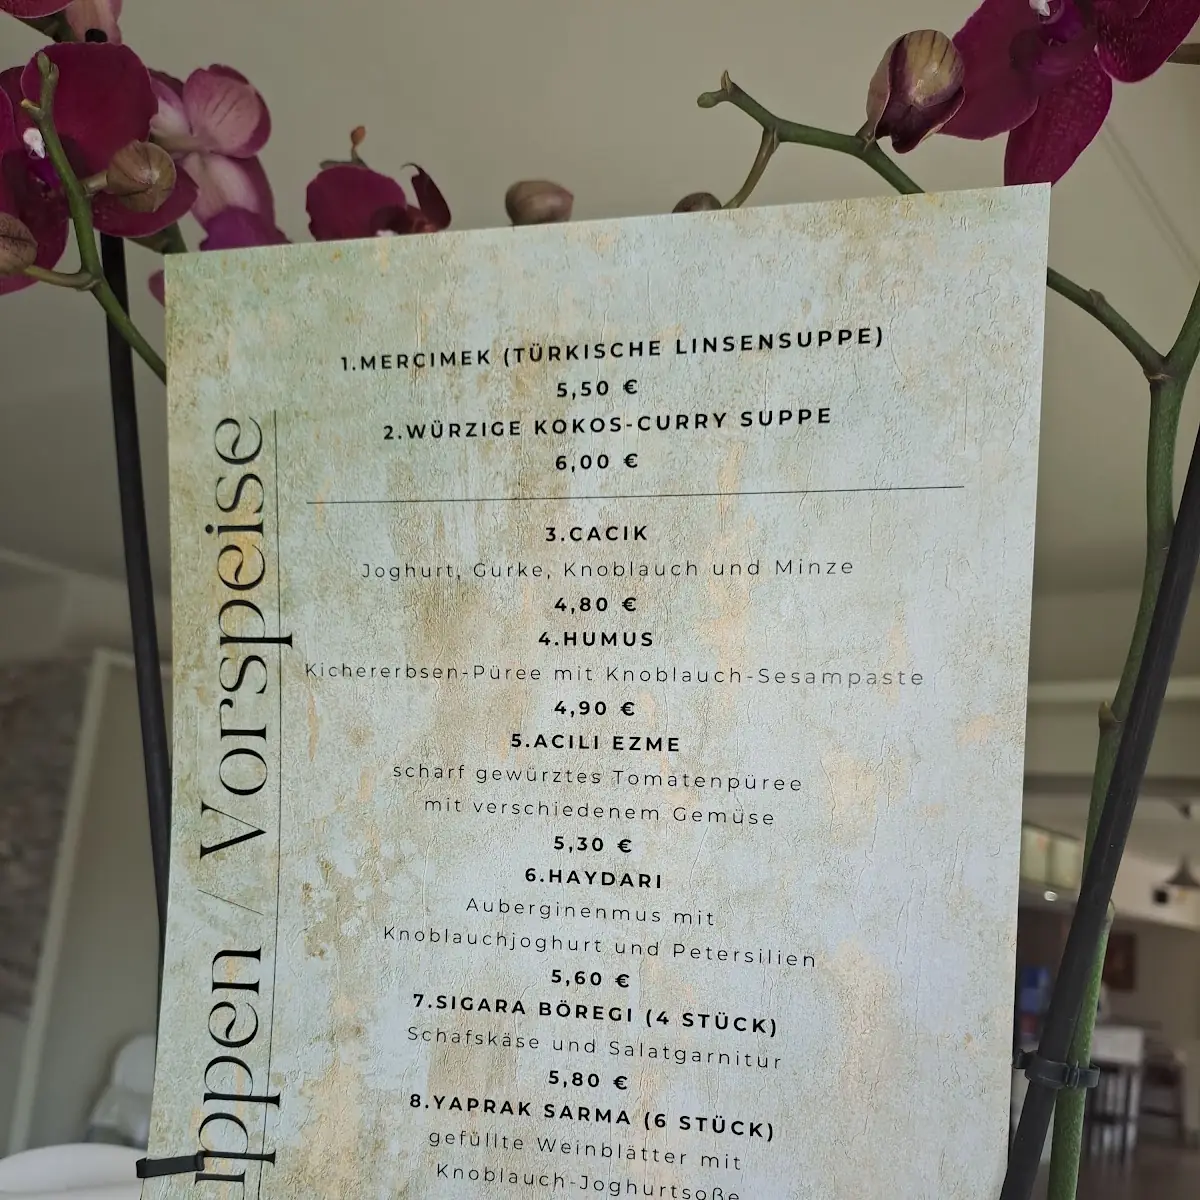 1.MERCIMEK (TÜRKISCHE LINSENSUPPE)
5,50 €
2.WÜRZIGE KOKOS-CURRY SUPPE
6,00 €
3.CACIK
Joghurt, Gurke, Knoblauch und Minze
4,80 €
4.HUMUS
Kichererbsen-Püree mit Knoblauch-Sesampaste
4,90 €
5.ACILI EZME
scharf gewürztes Tomatenpüree
mit verschiedenem Gemüse
5,30 €
6.HAYDARI
Auberginenmus mit
Knoblauchjoghurt und Petersilien
5,60 €
7.SIGARA BÖREGI (4 STÜCK)
Schafskäse und Salatgarnitur
5,80 €
8.YAPRAK SARMA (6 STÜCK)
gefüllte Weinblätter mit
Knoblauch-Joghurtsoße
ppen / Vorspeise